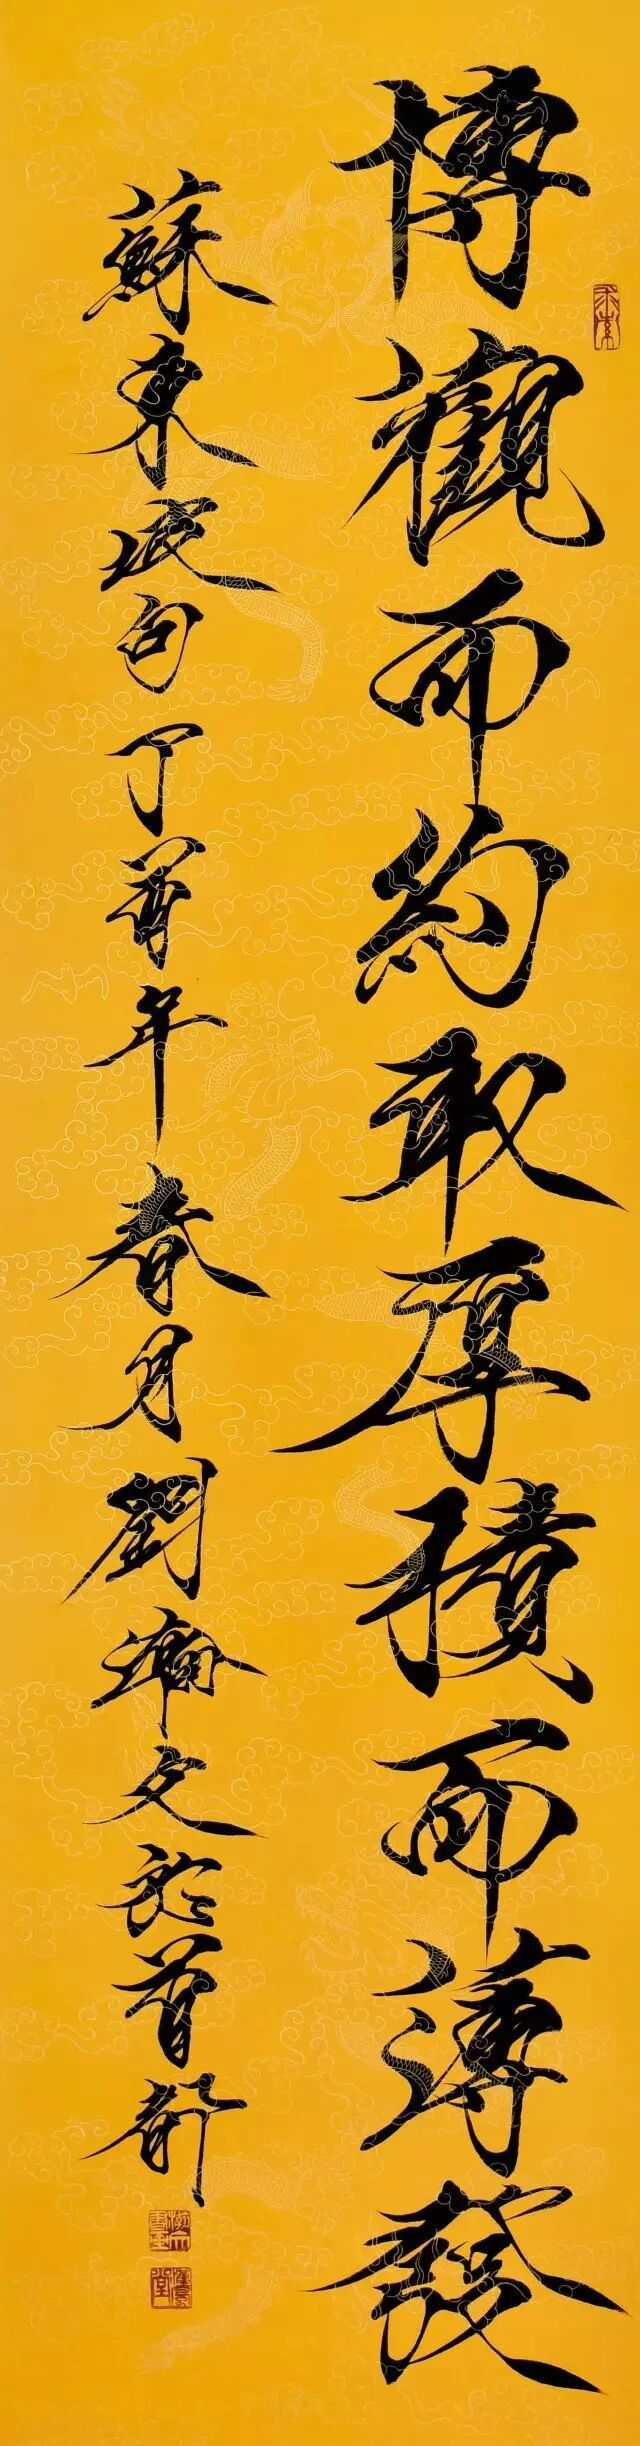 博觀而約取厚積而薄發
蘇東坡句丁酉年春月劉瀚文於首都